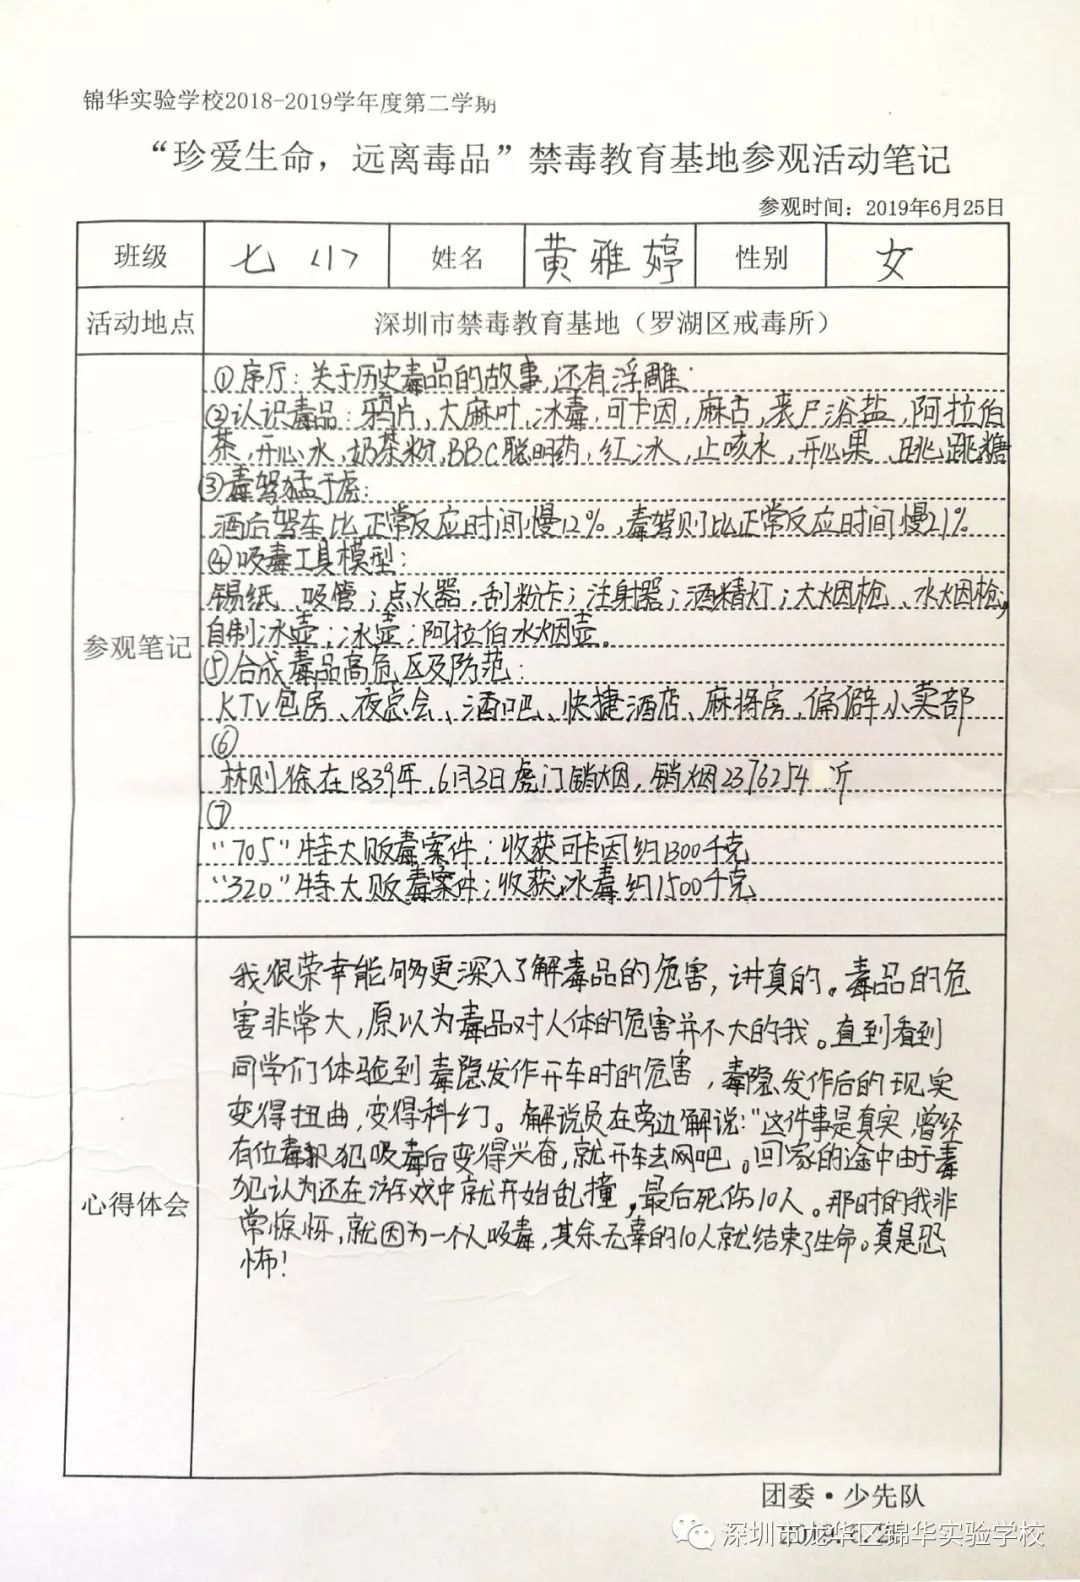 锦华实验学校2018-2019学年度第二学期
“珍爱生命，远离毒品”禁毒教育基地参观活动笔记
参观时间：2019年6月25日
班级 七<1> 姓名 黄雅婷 性别 女
活动地点 深圳市禁毒教育基地（罗湖区戒毒所）
参观笔记
①序厅：关于历史毒品的故事，还有浮雕；
②认识毒品：鸦片，大麻叶，冰毒，可卡因，麻古，丧尸浴盐，阿拉伯
茶，开心水，奶茶粉，BBC聪明药，红冰，止咳水，开心果、跳跳糖
③毒驾猛于虎：
酒后驾车比正常反应时间慢12%，毒驾则比正常反应时间慢21%
④吸毒工具模型：
锡纸、吸管；点火器，刮粉卡；注射器；酒精灯；大烟枪、水烟枪；
自制冰壶；冰壶；阿拉伯水烟壶。
⑤合成毒品高危区及防范：
KTV包房、夜总会、酒吧、快捷酒店、麻将房，偏僻小卖部
⑥
林则徐在1839年，6月3日虎门销烟，销烟2376254 斤
⑦
“705”特大贩毒案件；收获可卡因约1300千克
“320”特大贩毒案件；收获冰毒约1500千克
心得体会
我很荣幸能够更深入了解毒品的危害，讲真的。毒品的危
害非常大，原以为毒品对人体的危害并不大的我。直到看到
同学们体验到毒隐发作开车时的危害，毒隐发作后的现实
变得扭曲，变得科幻。解说员在旁边解说：“这件事是真实，曾经
有位毒犯吸毒后变得兴奋，就开车去网吧。回家的途中由于毒
犯认为还在游戏中就开始乱撞，最后死伤10人。那时的我非
常惊怀，就因为一个人吸毒，其余无辜的10人就结束了生命。真是恐
怖！
团委·少先队
深圳市龙华区锦华实验学校